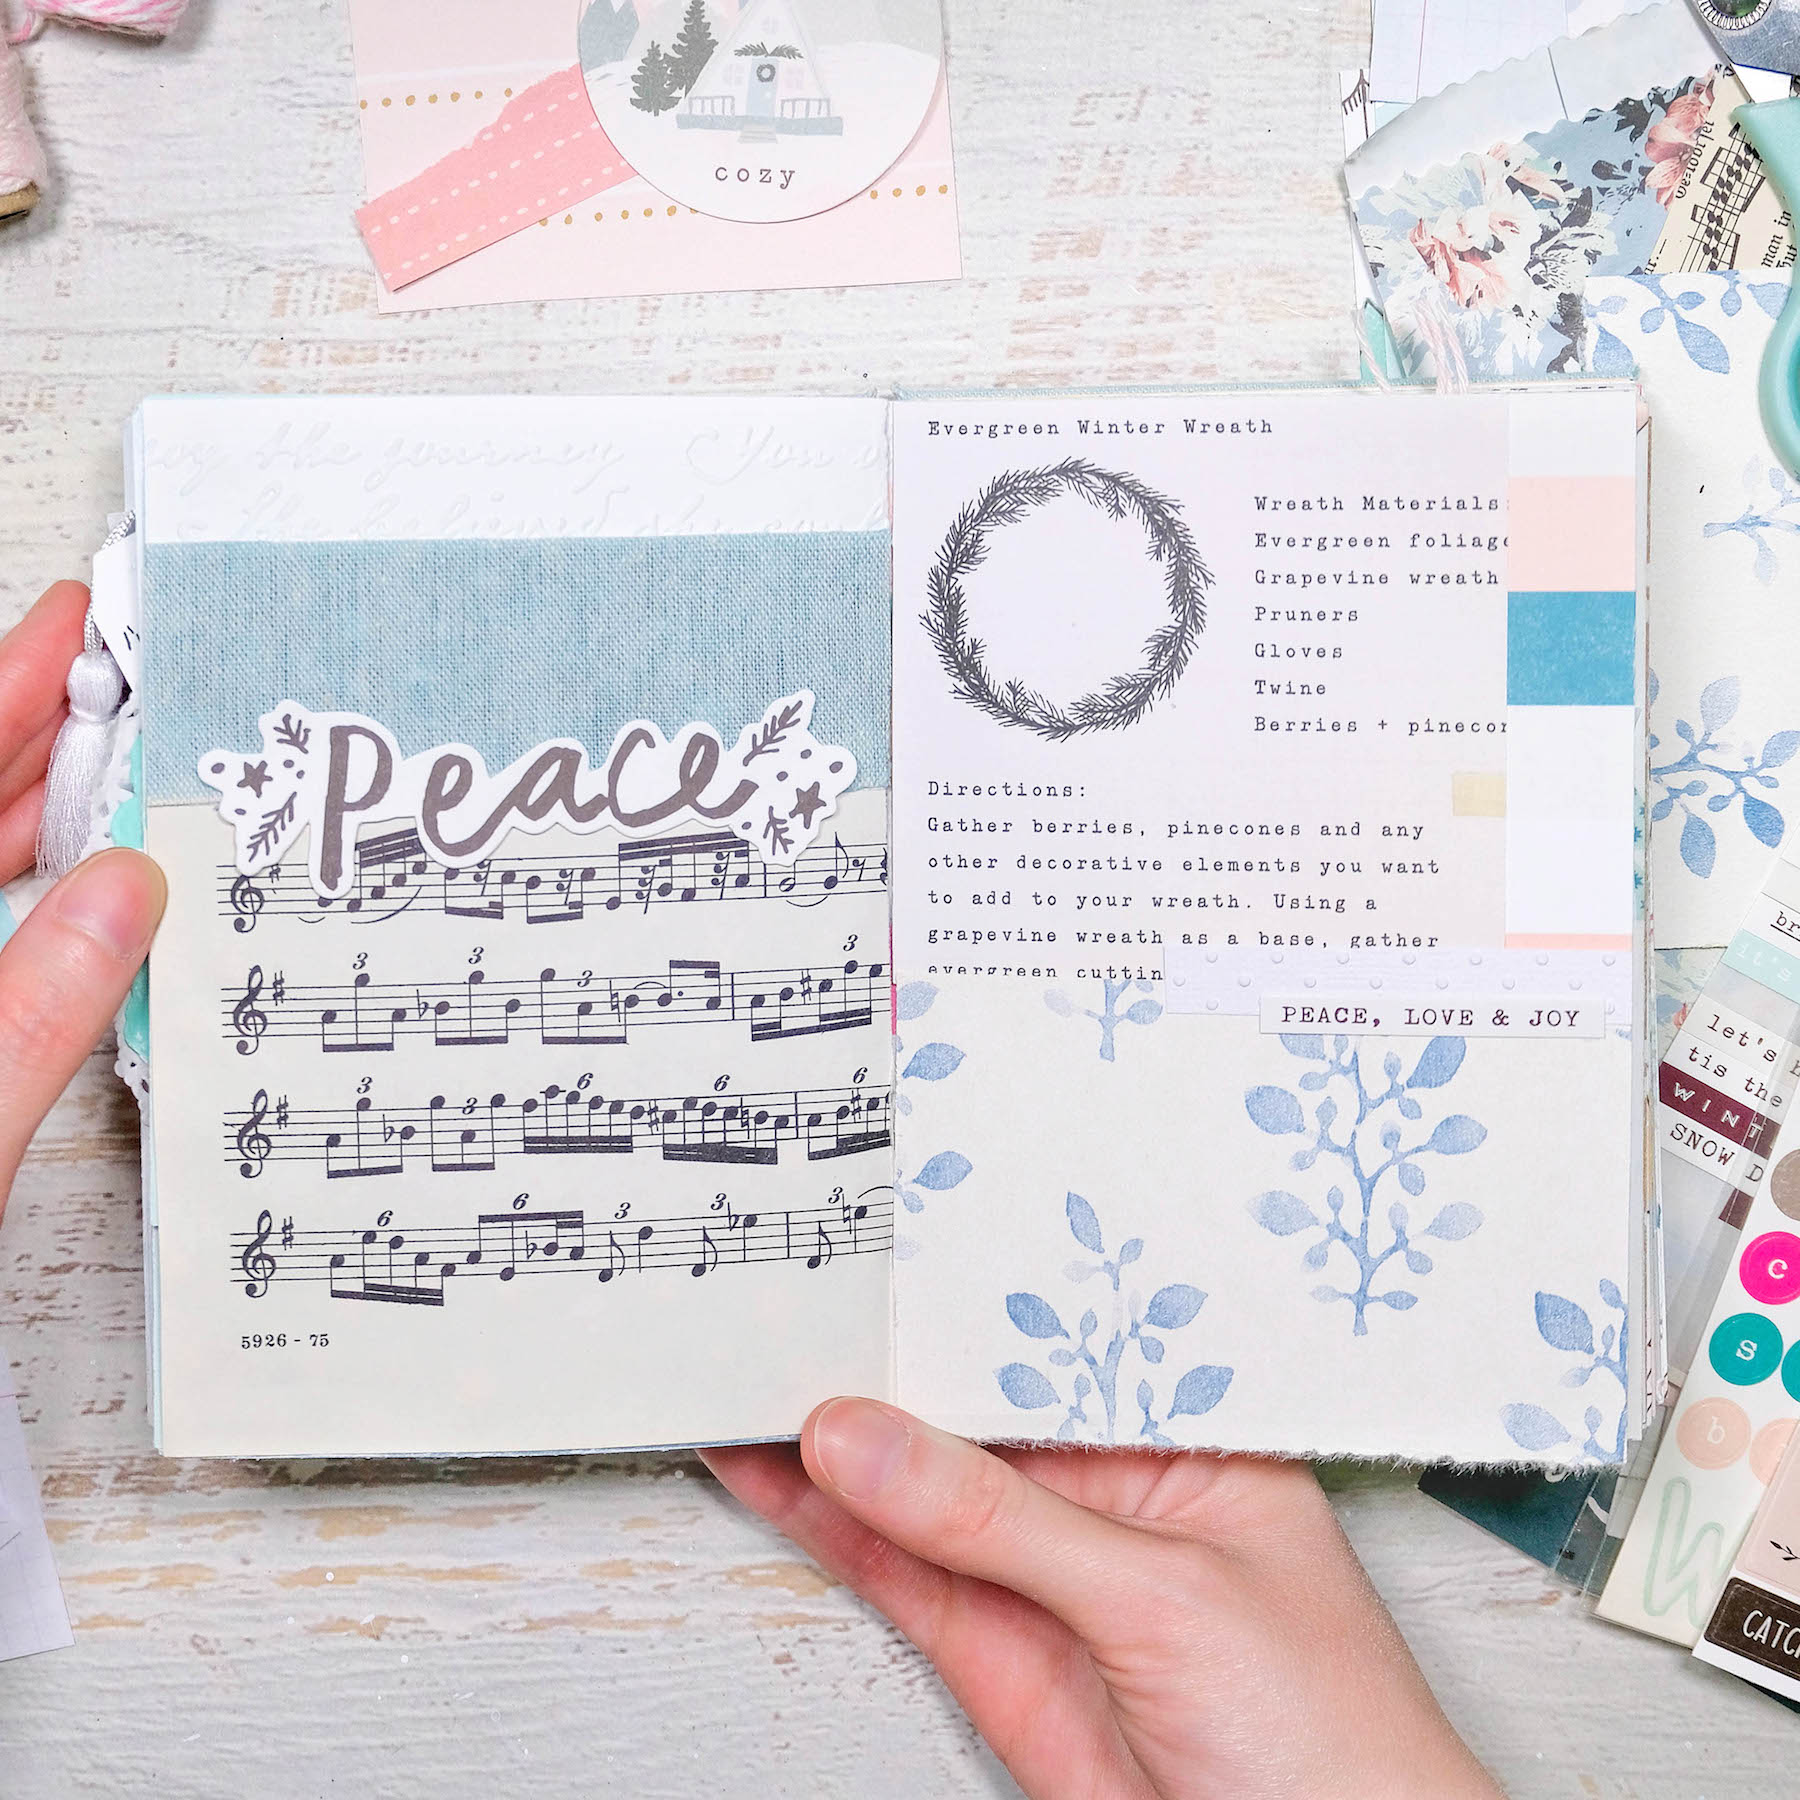 cozy
the journey You
believed she
Peace
3 3 3 3
3 3 6 6 6
6 6 3 3 3
5926 - 75
Evergreen Winter Wreath
Wreath Materials
Evergreen foliage
Grapevine wreath
Pruners
Gloves
Twine
Berries + pinecon
Directions:
Gather berries, pinecones and any
other decorative elements you want
to add to your wreath. Using a
grapevine wreath as a base, gather
evergreen cuttin
PEACE, LOVE & JOY
man in
but
it's
let's
tis the
WINT
SNOW D
c
s
b
CATC